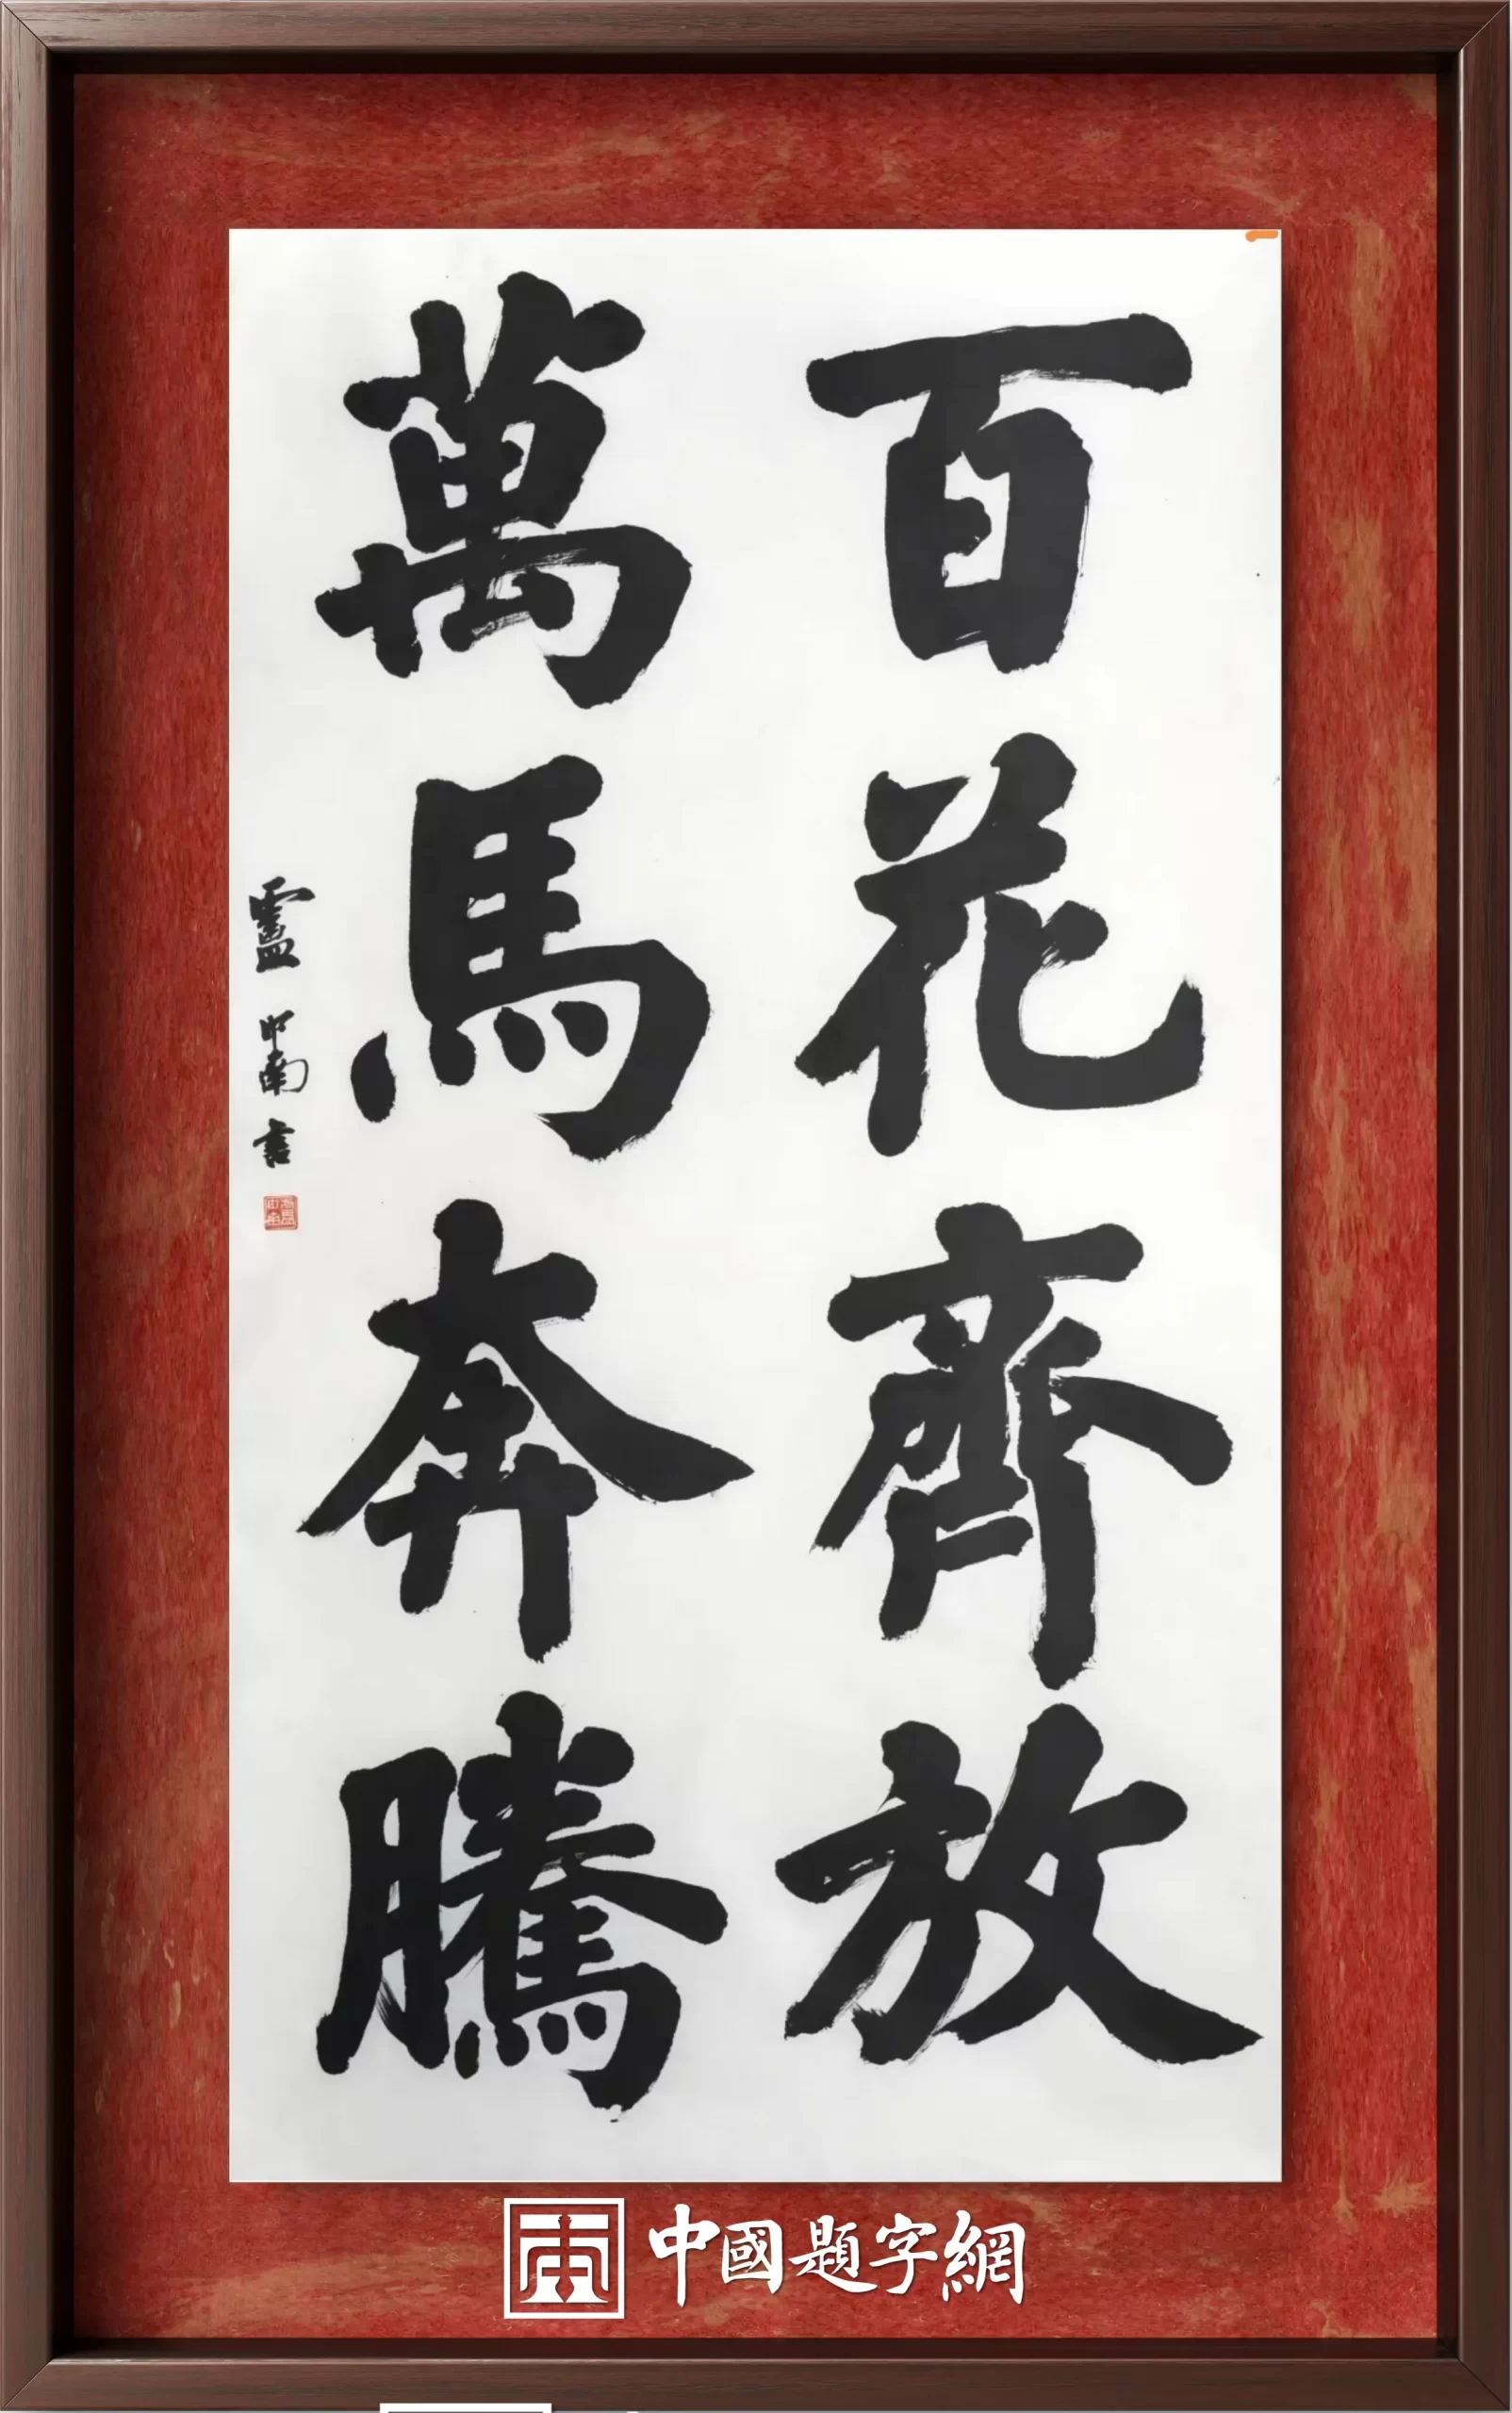 百花齊放
萬馬奔騰
盧中南書
中國題字網